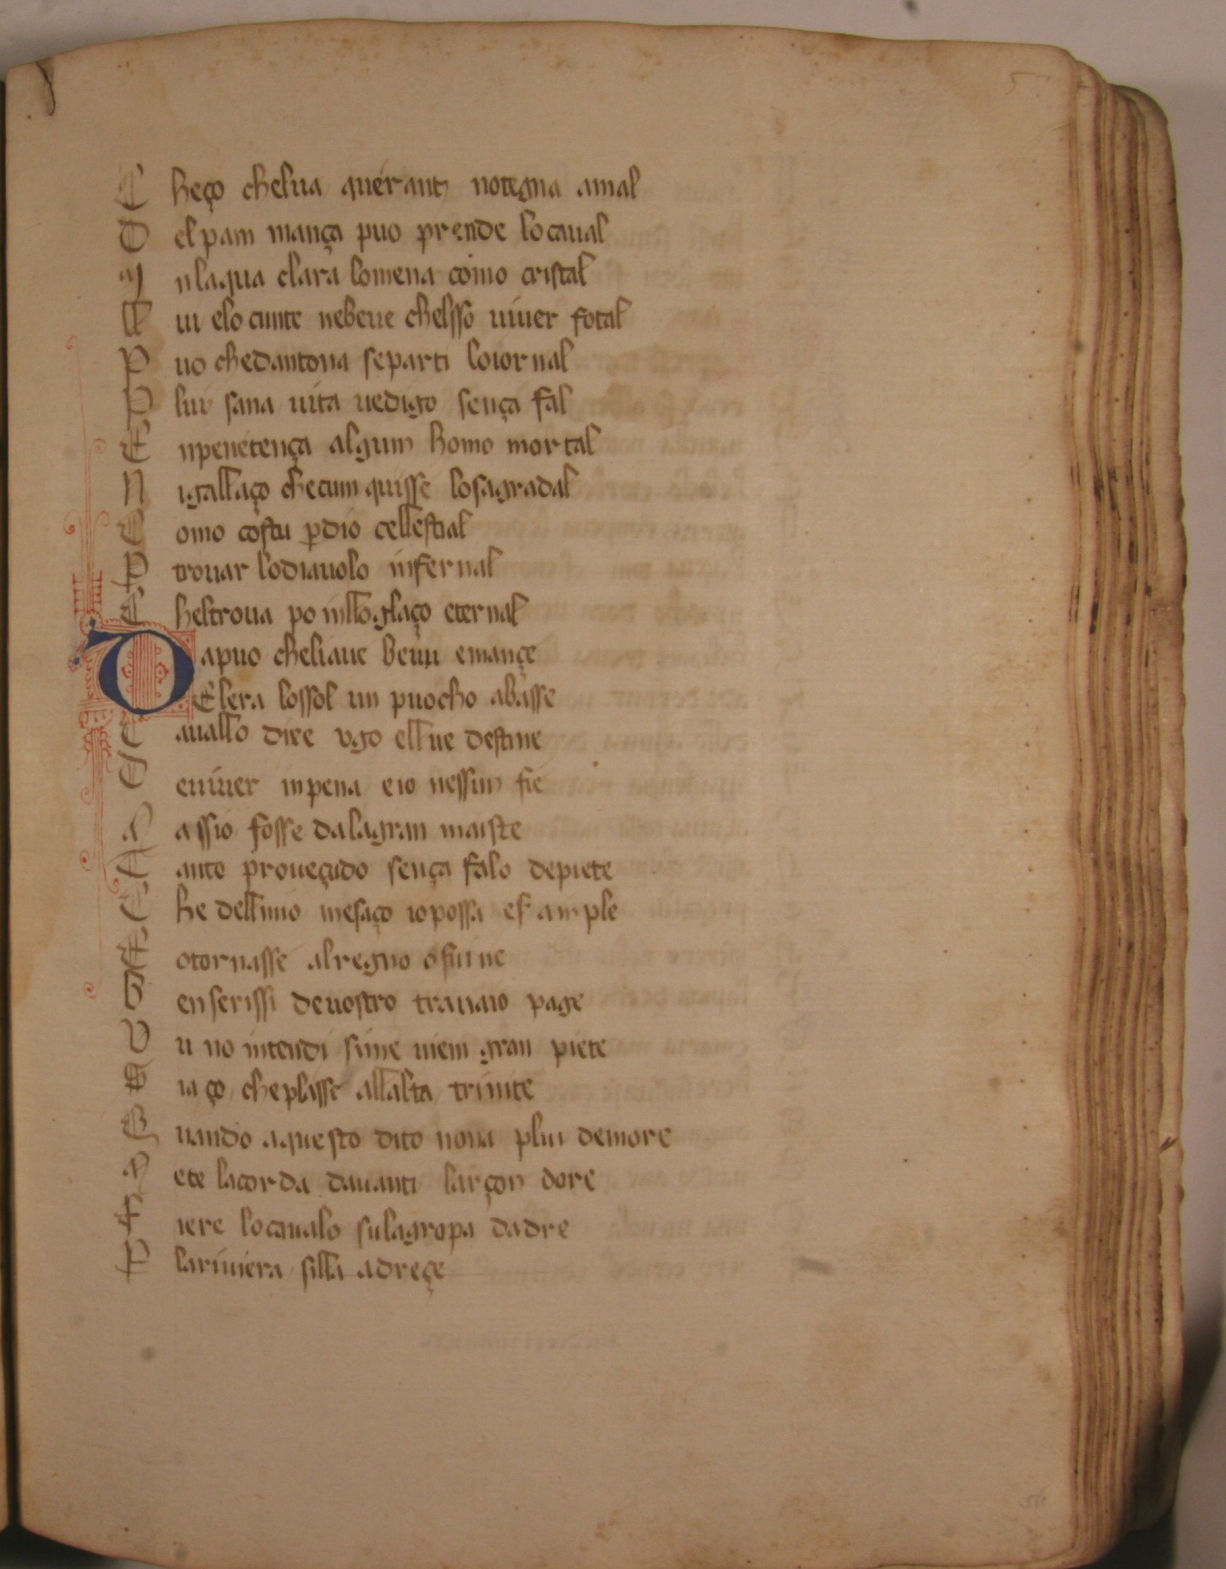 C heço chelua querant notegna amal
D el pam mança puo prende lo caual
I nlaqua clara lomena como cristal
L ui elo cunte nebeue chelsso uiuer fotal
P uo chedantona separti loiornal
P lui sana uita uedigo sença fal
E npenetença algun homo mortal
N igallaço checum quisse losagradal
C omo costu pdio cellestial
P trouar lodiauolo infernal
C heltroua po nillo glaço eternal
D apuo cheliaue beuu emançe
E lera lossol un puocho abasse
C auallo dire vgo ellue destine
D euiuer inpena eio nessun fie
M assio fosse dalagran maiste
T anto proueçudo sença falo depiete
C he dellimo mesaço iopossa esample
E otornasse alregno ofuine
B en serissi deuostro trauaio page
V u no intendi sine uiem gran piete
S ia ço cheplasse allalta trinite
Q uando aquesto dito nona plui demore
M ete lacorda dauanti larçon dore
F iere locaualo sulagropa dadre
P lariuiera silla adreçe
56